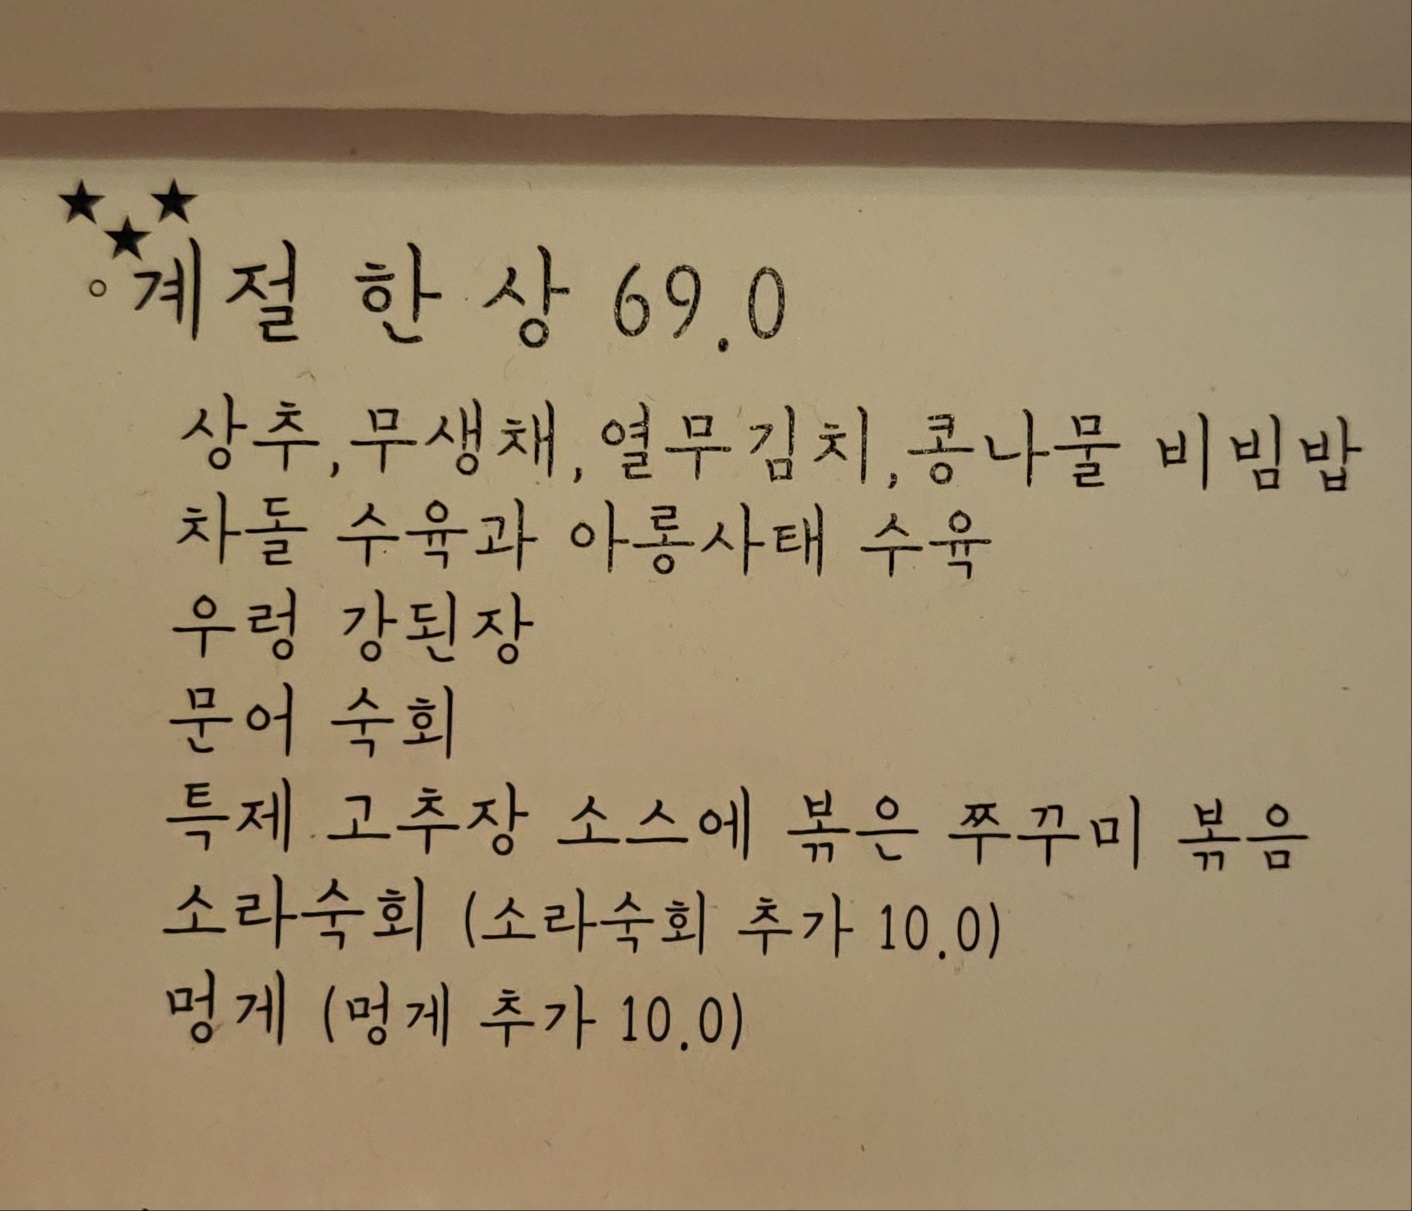 ◦계절 한 상 69.0
상추,무생채,열무김치,콩나물 비빔밥
차돌 수육과 아롱사태 수육
우렁 강된장
문어 숙회
특제 고추장 소스에 볶은 쭈꾸미 볶음
소라숙회 (소라숙회 추가 10.0)
멍게 (멍게 추가 10.0)